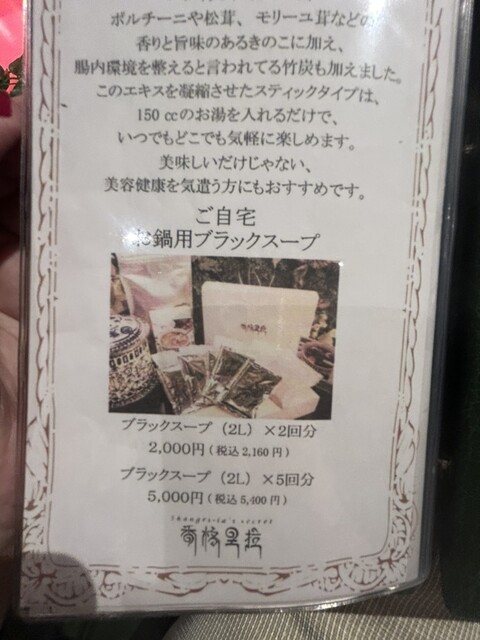 ポルチーニや松茸、モリーユ茸などの
香りと旨味のあるきのこに加え、
腸内環境を整えると言われてる竹炭も加えました。
このエキスを凝縮させたスティックタイプは、
150 ccのお湯を入れるだけで、
いつでもどこでも気軽に楽しめます。
美味しいだけじゃない、
美容健康を気遣う方にもおすすめです。
ご自宅
お鍋用ブラックスープ
ブラックスープ（2L）×2回分
2,000円（税込2,160円）
ブラックスープ（2L）×5回分
5,000円（税込5,400円）
Shangri-la's secret
香格里拉